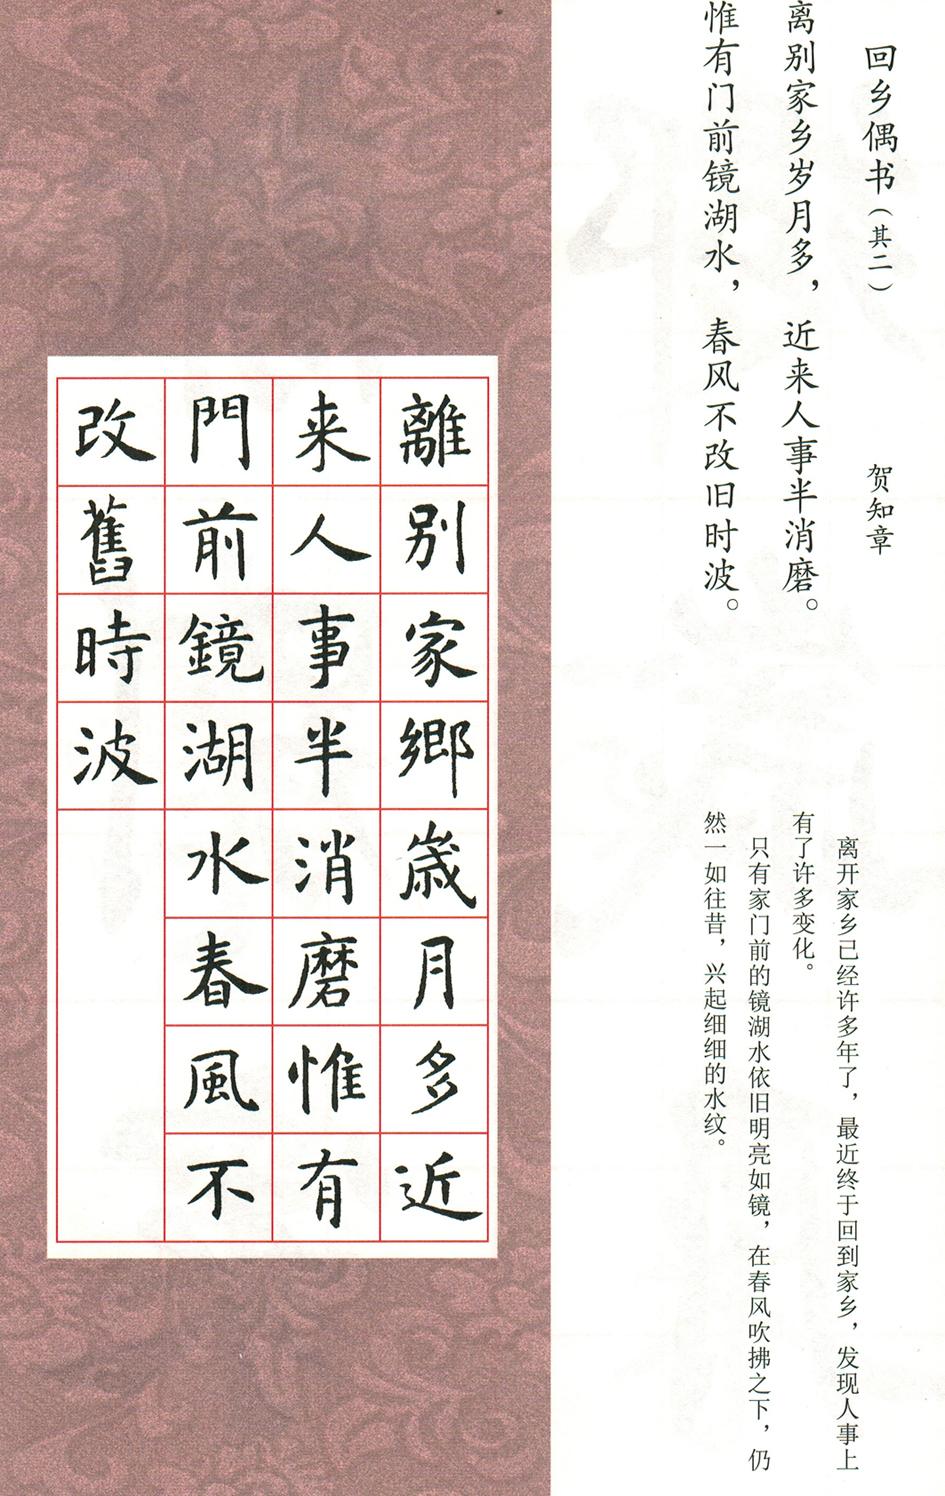 回乡偶书（其二）
贺知章
离别家乡岁月多，近来人事半消磨。
惟有门前镜湖水，春风不改旧时波。
离开家乡已经许多年了，最近终于回到家乡，发现人事上
有了许多变化。
只有家门前的镜湖水依旧明亮如镜，在春风吹拂之下，仍
然一如往昔，兴起细细的水纹。
離別家鄉歲月多近
来人事半消磨惟有
門前鏡湖水春風不
改舊時波